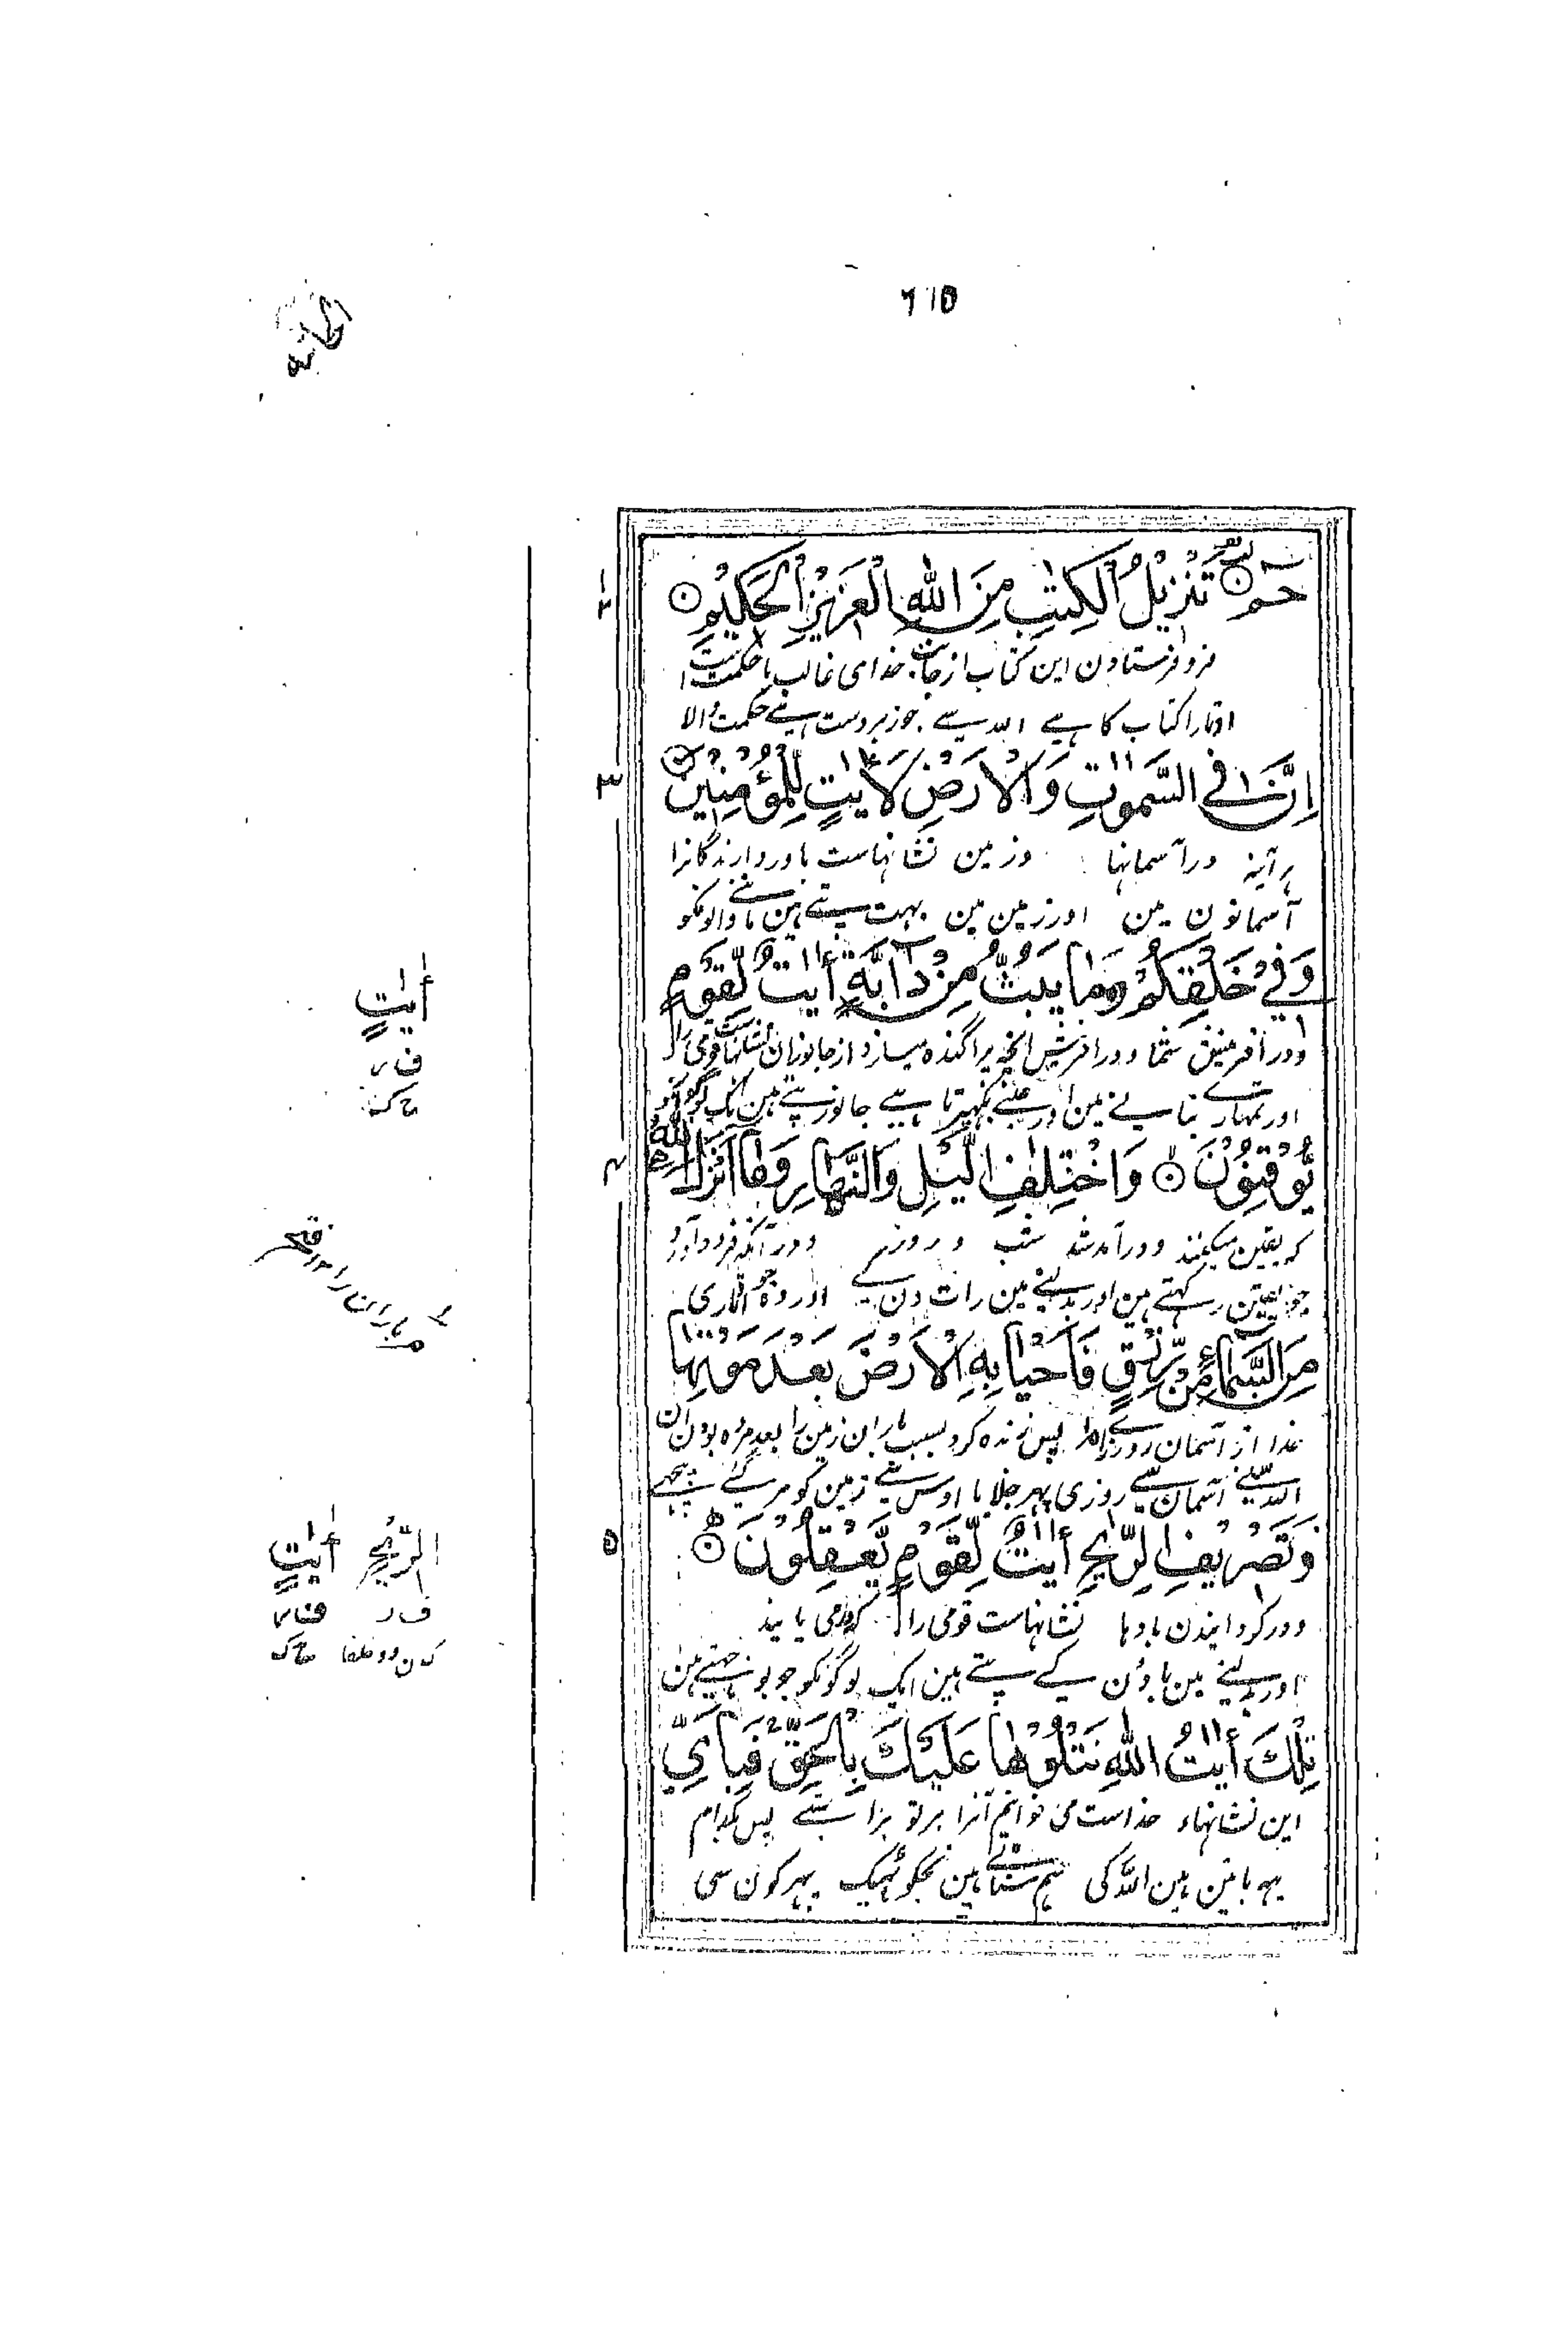 615
الجاثیه
حٰمٓ ۝ تَنْزِیْلُ الْكِتٰبِ مِنَ اللّٰهِ الْعَزِیْزِ الْحَكِیْمِ ۝
فرو فرستادن این کتاب از جانب خدای غالب با حکمت است
اوتارا کتاب کا ہے اللہ سے جو زبردست ہے حکمت والا
اِنَّ فِی السَّمٰوٰتِ وَالْاَرْضِ لَاٰیٰتٍ لِّلْمُؤْمِنِیْنَ ۝
ہر آئنہ در آسمانہا وزمین نشانہاست باور دارندگانرا
آسمانون مین اور زمین مین بہت پتے ہین ماننے والونکو
وَفِیْ خَلْقِكُمْ وَمَا یَبُثُّ مِنْ دَآبَّةٍ اٰیٰتٌ لِّقَوْمٍ
ودر آفرینش شما ودر آفرینش آنچہ پراگندہ میسازد از جانوران نشانہاست قومی را
اور تمہارے بنانے مین اور جتنے بکھیرتا ہے جانور پتے ہین ایک لوگونکو
یُّوْقِنُوْنَ ۝ وَاخْتِلٰفِ الَّیْلِ وَالنَّهَارِ وَمَاۤ اَنْزَلَ اللّٰهُ
کہ یقین میکنند ودر آمد شد شب وروز ودر آنکہ فرود آورد
جو یقین رکہتے ہین اور بدلنے مین رات دن کے اور وہ جو اتاری
مِنَ السَّمَآءِ مِنْ رِّزْقٍ فَاَحْیَا بِهِ الْاَرْضَ بَعْدَ مَوْتِهَا
خدا از آسمان روزی را پس زندہ کرد بسبب باران زمین را بعد مردہ بودن آن
اللہ نے آسمان سے روزی پہر جلایا اوس سے زمین کو مر گئے پیچھے
وَتَصْرِیْفِ الرِّیٰحِ اٰیٰتٌ لِّقَوْمٍ یَّعْقِلُوْنَ ۝
ودر گردانیدن بادہا نشانہاست قومی را کہ در می یابند
اور بدلنے مین باؤن کے پتے ہین ایک لوگونکو جو بوجہتے ہین
تِلْكَ اٰیٰتُ اللّٰهِ نَتْلُوْهَا عَلَیْكَ بِالْحَقِّ فَبِاَیِّ
این نشانہاء خداست می خوانیم آنرا بر تو براستی پس بکدام
یہہ باتین ہین اللہ کی ہم سناتے ہین تجکو ٹھیک پہر کون سی
۲
۳
۴
۵
اٰیٰتٍ
الرِّیْحِ اٰیٰتٍ